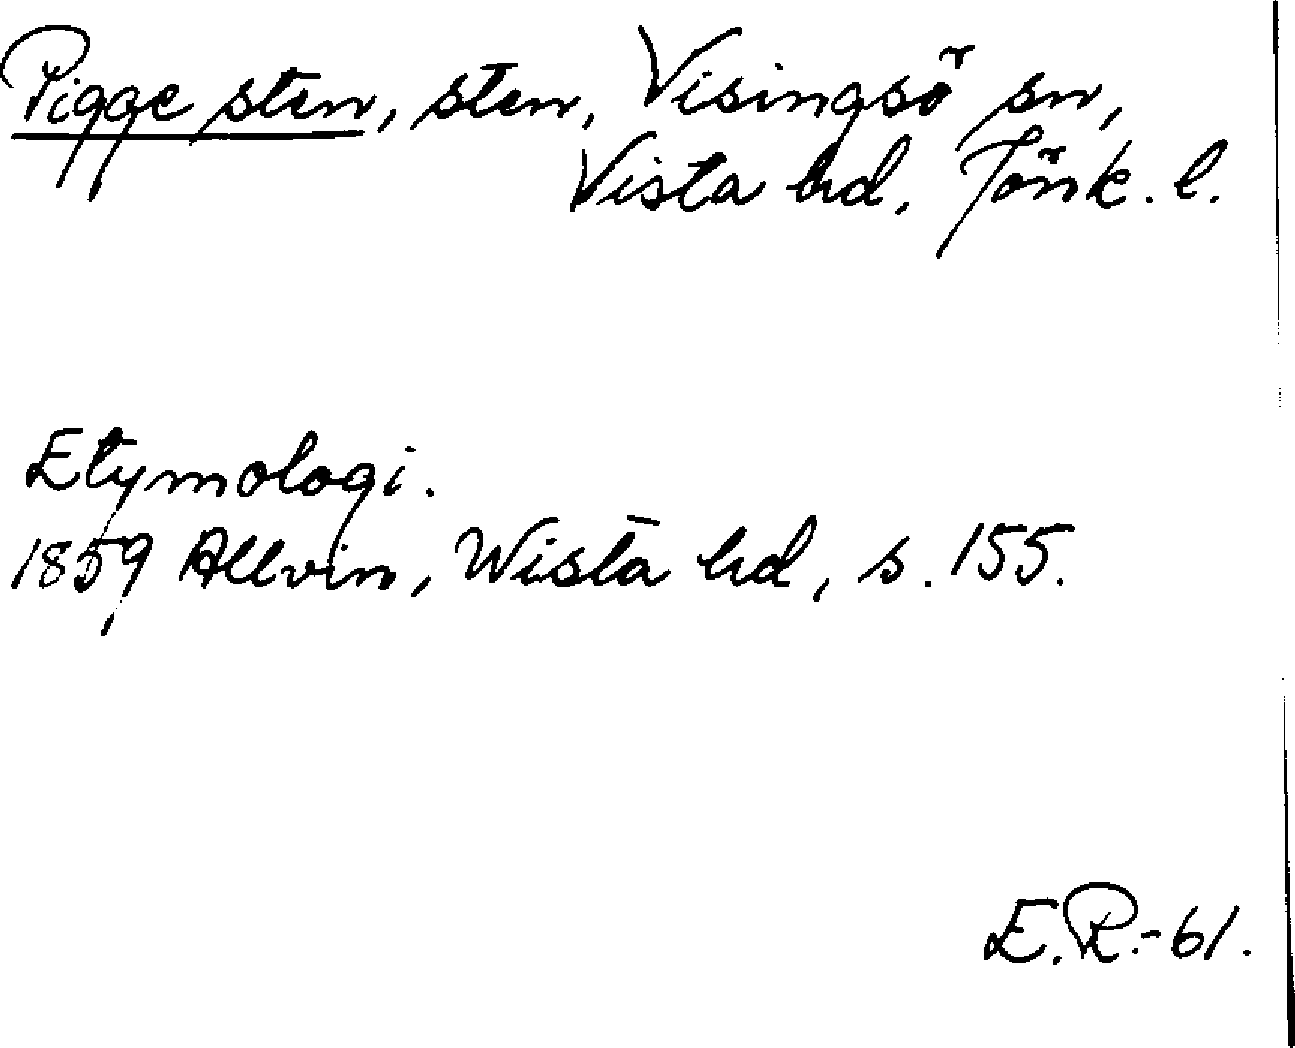 Pigge sten, sten, Visingsö sn,
Vista hd, Jönk. l.
Etymologi.
1859 Allvin, Wista hd, s. 155.
E.R.-61.